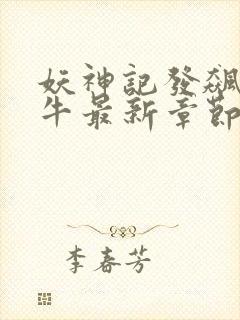 妖神記發飆
牛最新章節
李春芳